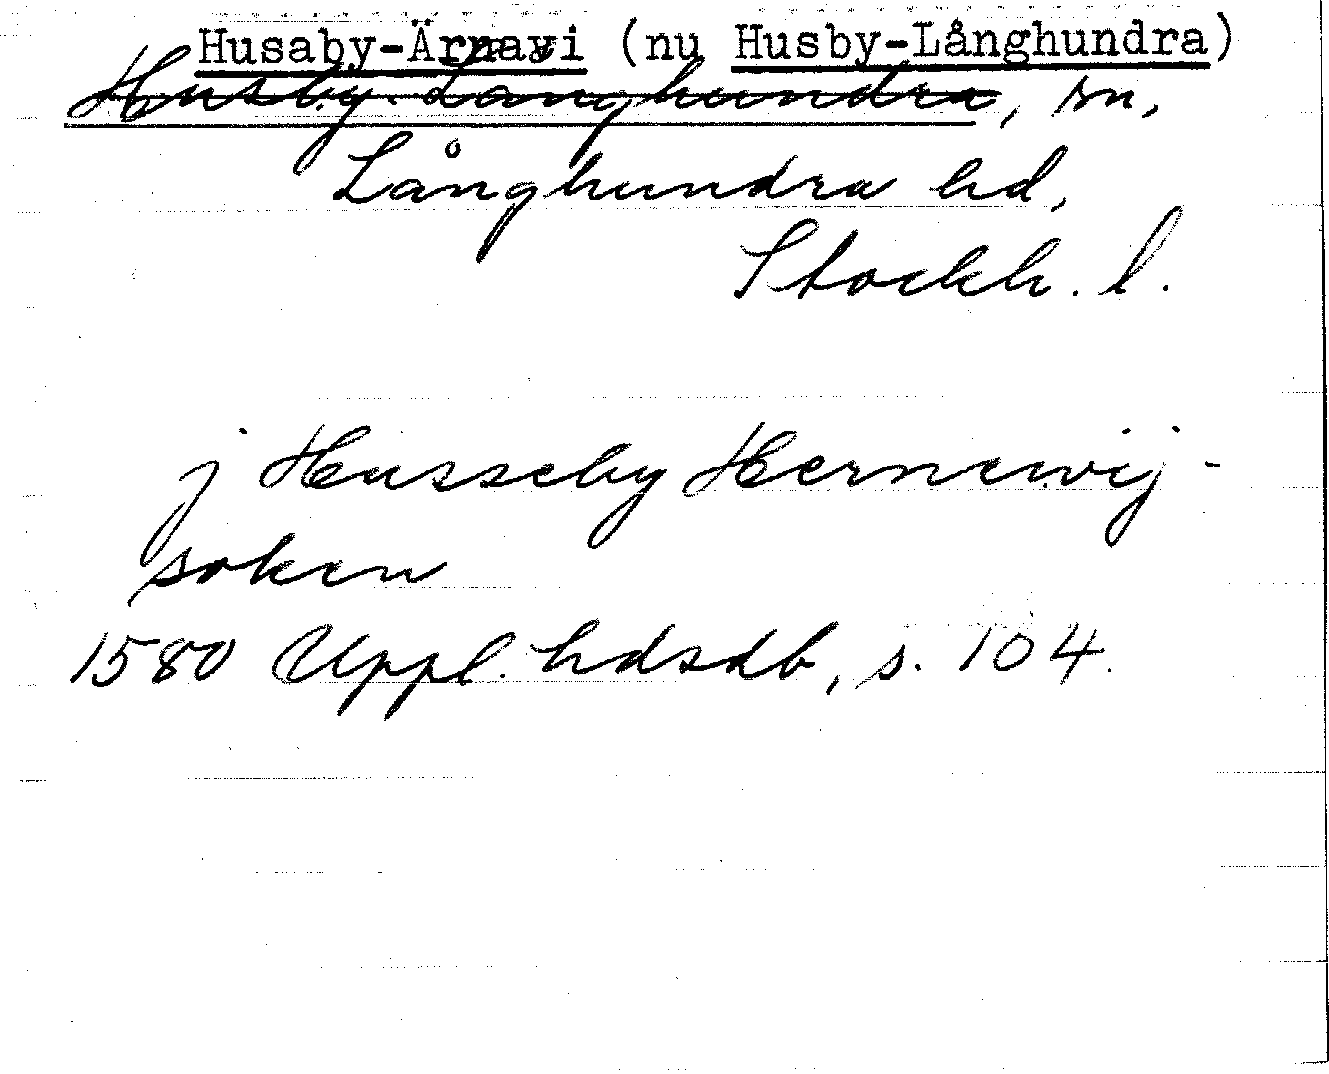 Husaby-Ärnavi (nu Husby-Långhundra)
Husby-Långhundra, sn,
Långhundra hd,
Stockh. l.
j Husseby Hernewij-
soken
1580 Uppl. hdsdb, s. 104.